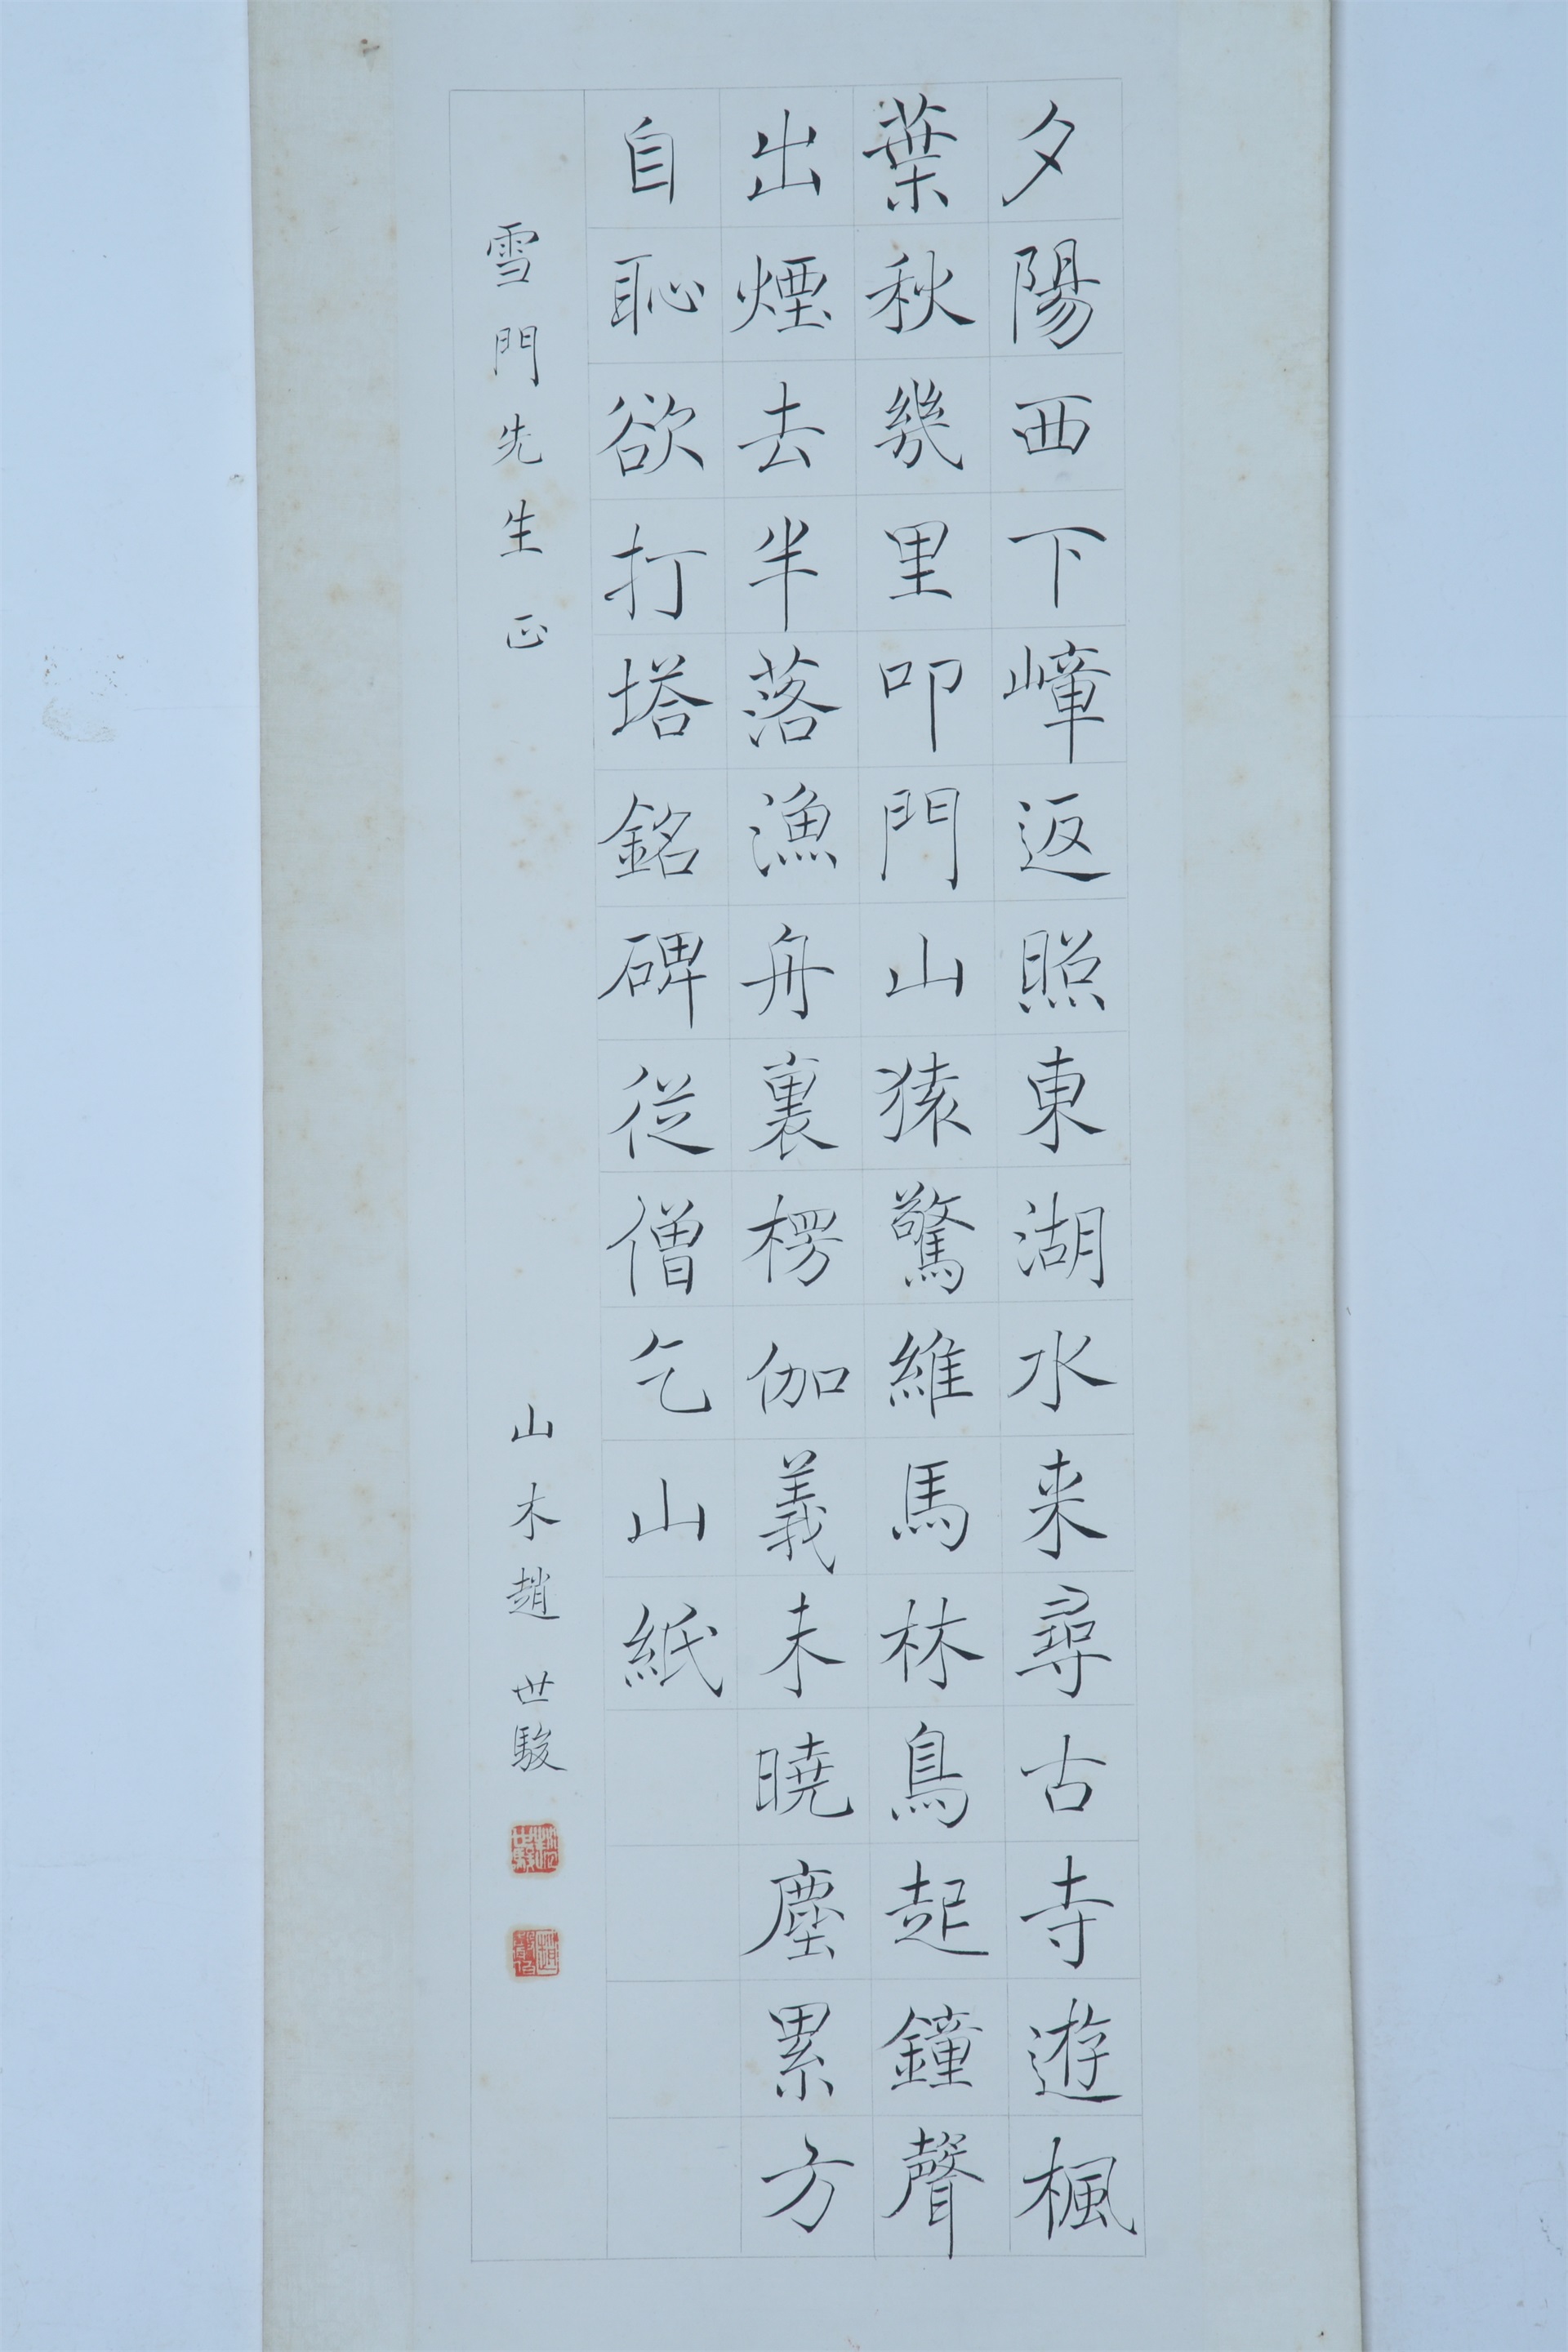 夕陽西下嶂返照東湖水来尋古寺遊楓
葉秋幾里叩門山猿驚維馬林鳥起鐘聲
出煙去半落漁舟裏楞伽義未曉塵累方
自恥欲打塔銘碑從僧乞山紙
雪門先生正
山木趙世駿